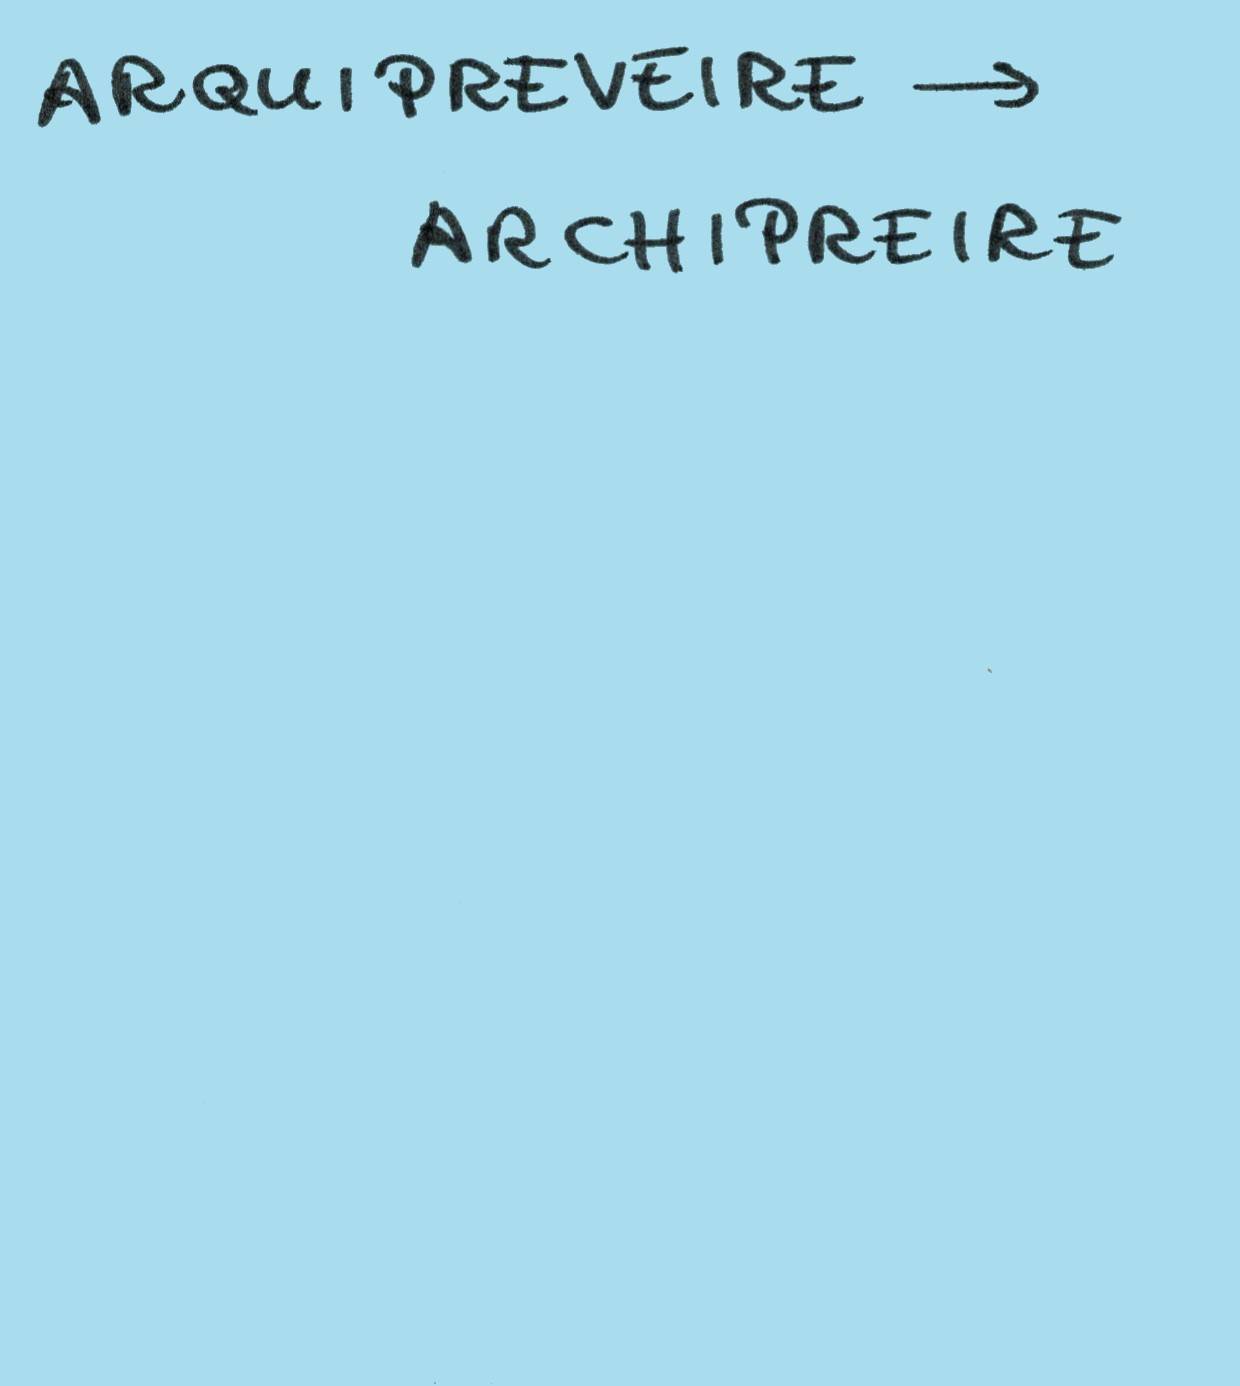 ARQUIPREVEIRE →
ARCHIPREIRE